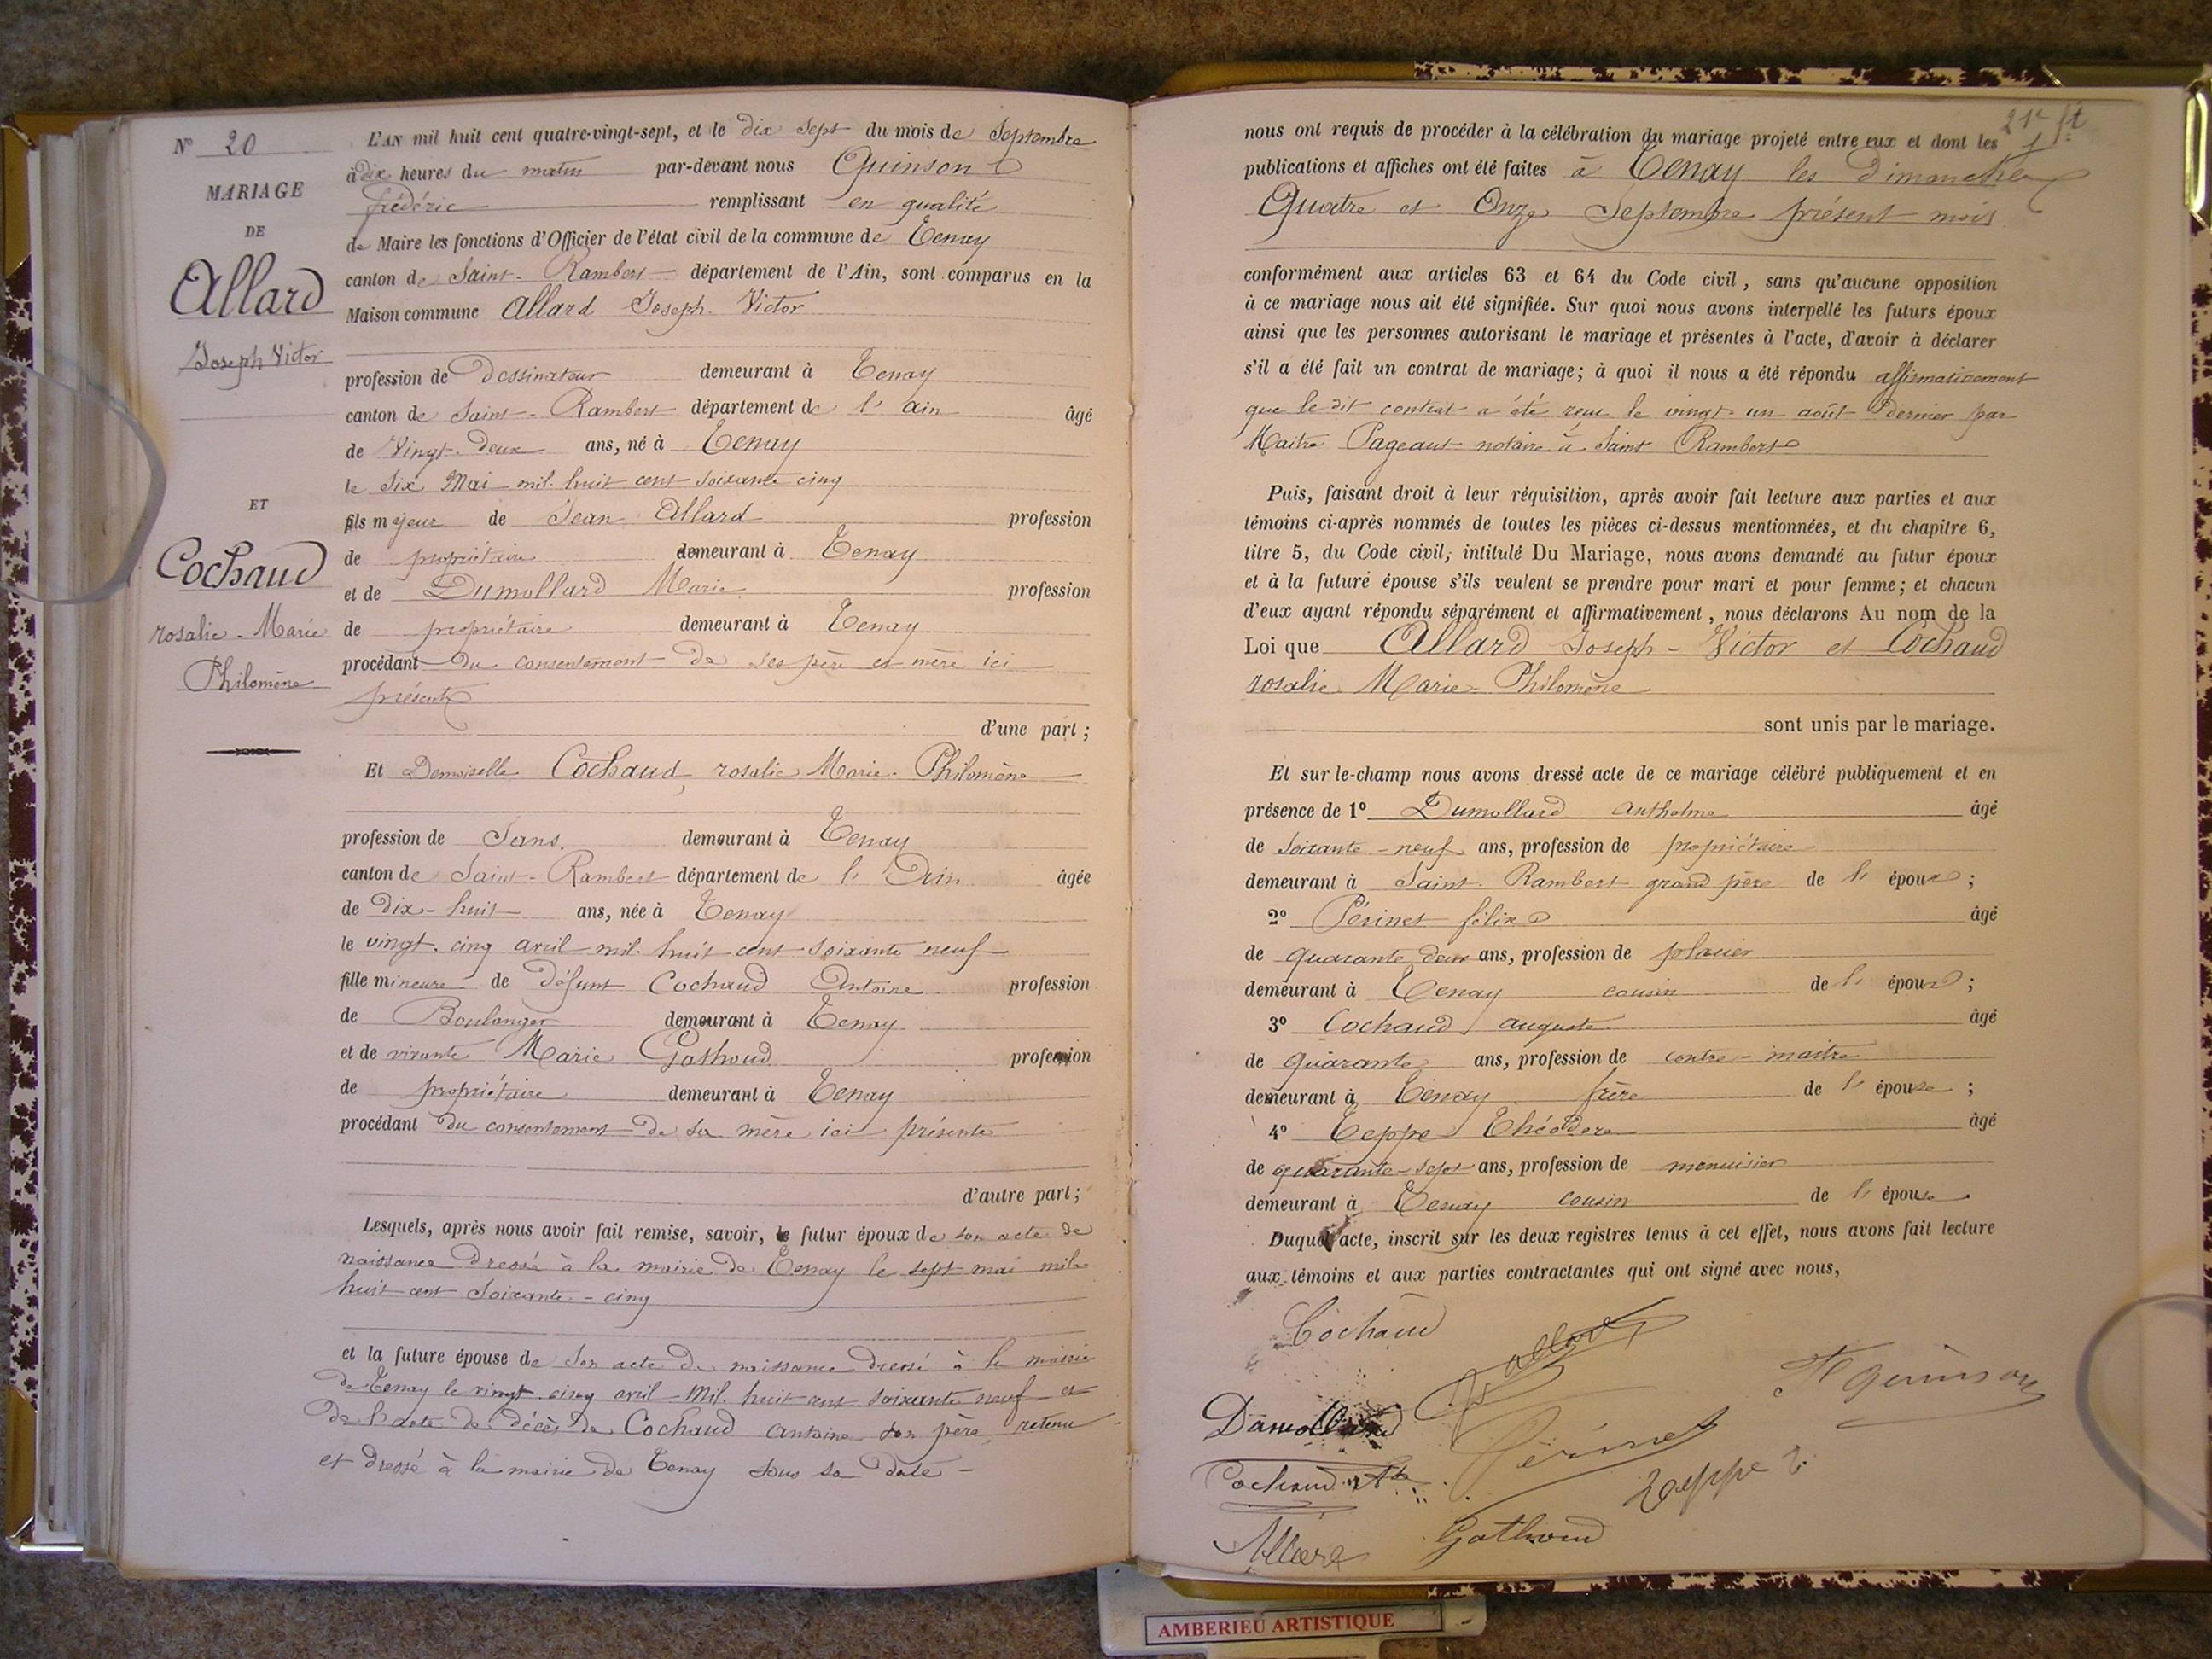 N° 20
MARIAGE
DE
Allard
Joseph Victor
ET
Cochaud
rosalie-Marie
Philomène
L'AN mil huit cent quatre-vingt-sept, et le dix sept du mois de Septembre
à dix heures du matin par-devant nous Quinson
frédéric remplissant en qualité
de Maire les fonctions d'Officier de l'état civil de la commune de Tenay
canton de Saint-Rambert département de l'Ain, sont comparus en la
Maison commune Allard Joseph Victor
profession de Dessinateur demeurant à Tenay
canton de Saint-Rambert département de l'ain âgé
de Vingt-Deux ans, né à Tenay
le Six Mai mil huit cent soixante cinq
fils majeur de Jean Allard profession
de propriétaire demeurant à Tenay
et de Dumollard Marie profession
de propriétaire demeurant à Tenay
procédant du consentement de ses père et mère ici
présents
d'une part ;
Et Demoiselle Cochaud, rosalie Marie-Philomène
profession de Sans. demeurant à Tenay
canton de Saint-Rambert département de l'Ain âgée
de Dix-huit ans, née à Tenay
le vingt-cinq avril mil huit cent soixante neuf
fille mineure de défunt Cochaud Antoine profession
de Boulanger demeurant à Tenay
et de vivante Marie Gathoud profession
de propriétaire demeurant à Tenay
procédant du consentement de sa mère ici présente
d'autre part ;
Lesquels, après nous avoir fait remise, savoir, le futur époux de son acte de
naissance dressé à la mairie de Tenay le sept mai mil
huit cent soixante-cinq
et la future épouse de son acte de naissance dressé à la mairie
de Tenay le vingt cinq avril mil huit cent soixante neuf et
de l'acte de décès de Cochaud antoine son père, retenu
et dressé à la mairie de Tenay sous sa date -
21e ft
nous ont requis de procéder à la célébration du mariage projeté entre eux et dont les
publications et affiches ont été faites à Tenay les Dimanches
Quatre et Onze Septembre présent mois
conformément aux articles 63 et 64 du Code civil, sans qu'aucune opposition
à ce mariage nous ait été signifiée. Sur quoi nous avons interpellé les futurs époux
ainsi que les personnes autorisant le mariage et présentes à l'acte, d'avoir à déclarer
s'il a été fait un contrat de mariage ; à quoi il nous a été répondu affirmativement
que le dit contrat a été reçu le vingt un août dernier par
Maitre Pageaut notaire à Saint Rambert
Puis, faisant droit à leur réquisition, après avoir fait lecture aux parties et aux
témoins ci-après nommés de toutes les pièces ci-dessus mentionnées, et du chapitre 6,
titre 5, du Code civil, intitulé Du Mariage, nous avons demandé au futur époux
et à la future épouse s'ils veulent se prendre pour mari et pour femme ; et chacun
d'eux ayant répondu séparément et affirmativement, nous déclarons Au nom de la
Loi que Allard Joseph-Victor et Cochaud
rosalie Marie Philomène
sont unis par le mariage.
Et sur-le-champ nous avons dressé acte de ce mariage célébré publiquement et en
présence de 1° Dumollard anthelme âgé
de soixante-neuf ans, profession de propriétaire
demeurant à Saint-Rambert grand père de l'époux ;
2° Périnet félix âgé
de quarante deux ans, profession de platrier
demeurant à Tenay cousin de l'époux ;
3° Cochaud auguste âgé
de quarante ans, profession de contre-maitre
demeurant à Tenay frère de l'épouse ;
4° Teppe Théodore âgé
de quarante-sept ans, profession de menuisier
demeurant à Tenay cousin de l'épouse
Duquel acte, inscrit sur les deux registres tenus à cet effet, nous avons fait lecture
aux témoins et aux parties contractantes qui ont signé avec nous,
Cochaud
Allard
F Quinson
Dumollard
Périnet
Cochaud
Teppe
Gathoud
Allard
AMBERIEU ARTISTIQUE